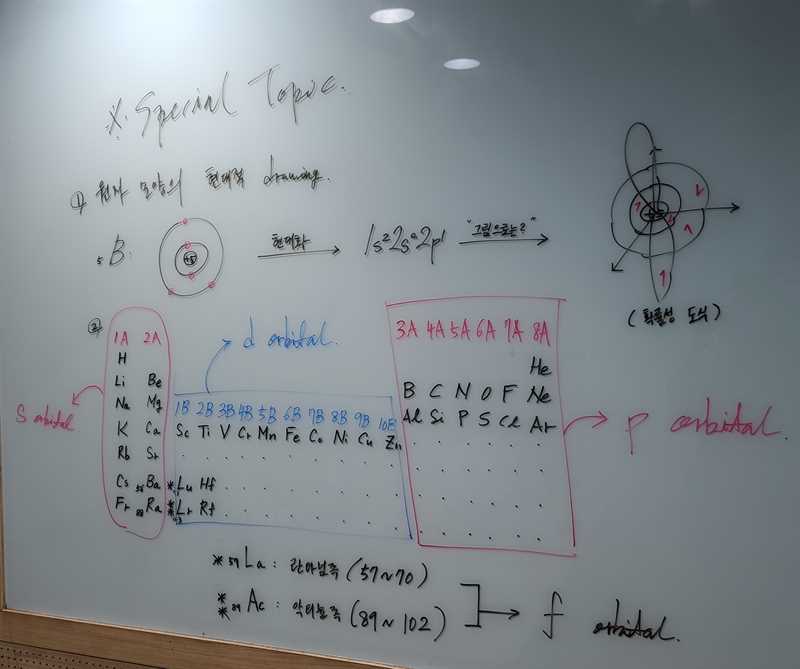 ※. Special Topic.
① 원자 모양의 현대적 drawing.
5B: +5 현대화 1s²2s²2p¹ "그림으로는?"
(확률성 도식)
②
1A 2A d orbital. 3A 4A 5A 6A 7A 8A
H He
Li Be B C N O F Ne
Na Mg 1B 2B 3B 4B 5B 6B 7B 8B 9B 10B Al Si P S Cl Ar
S orbital K Ca Sc Ti V Cr Mn Fe Co Ni Cu Zn p orbital.
Rb Sr
Cs 56Ba *Lu Hf
Fr 88Ra **Lr Rf
*57La: 란타넘족 (57~70)
**89Ac: 악티늄족 (89~102) f orbital.